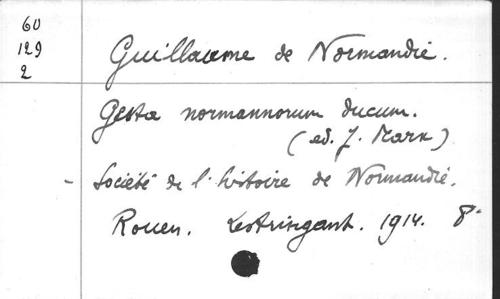 60
129
2
Guillaume de Normandie.
Gesta normannorum ducum.
(ed. J. Marx)
- Société de l'histoire de Normandie.
Rouen. Lestringant. 1914. 8°